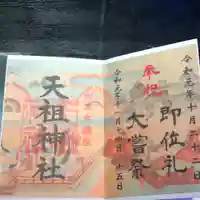 令和元年十月二十二日
即位礼
奉祝
大嘗祭
令和元年十一月十四日十五日
天祖神社